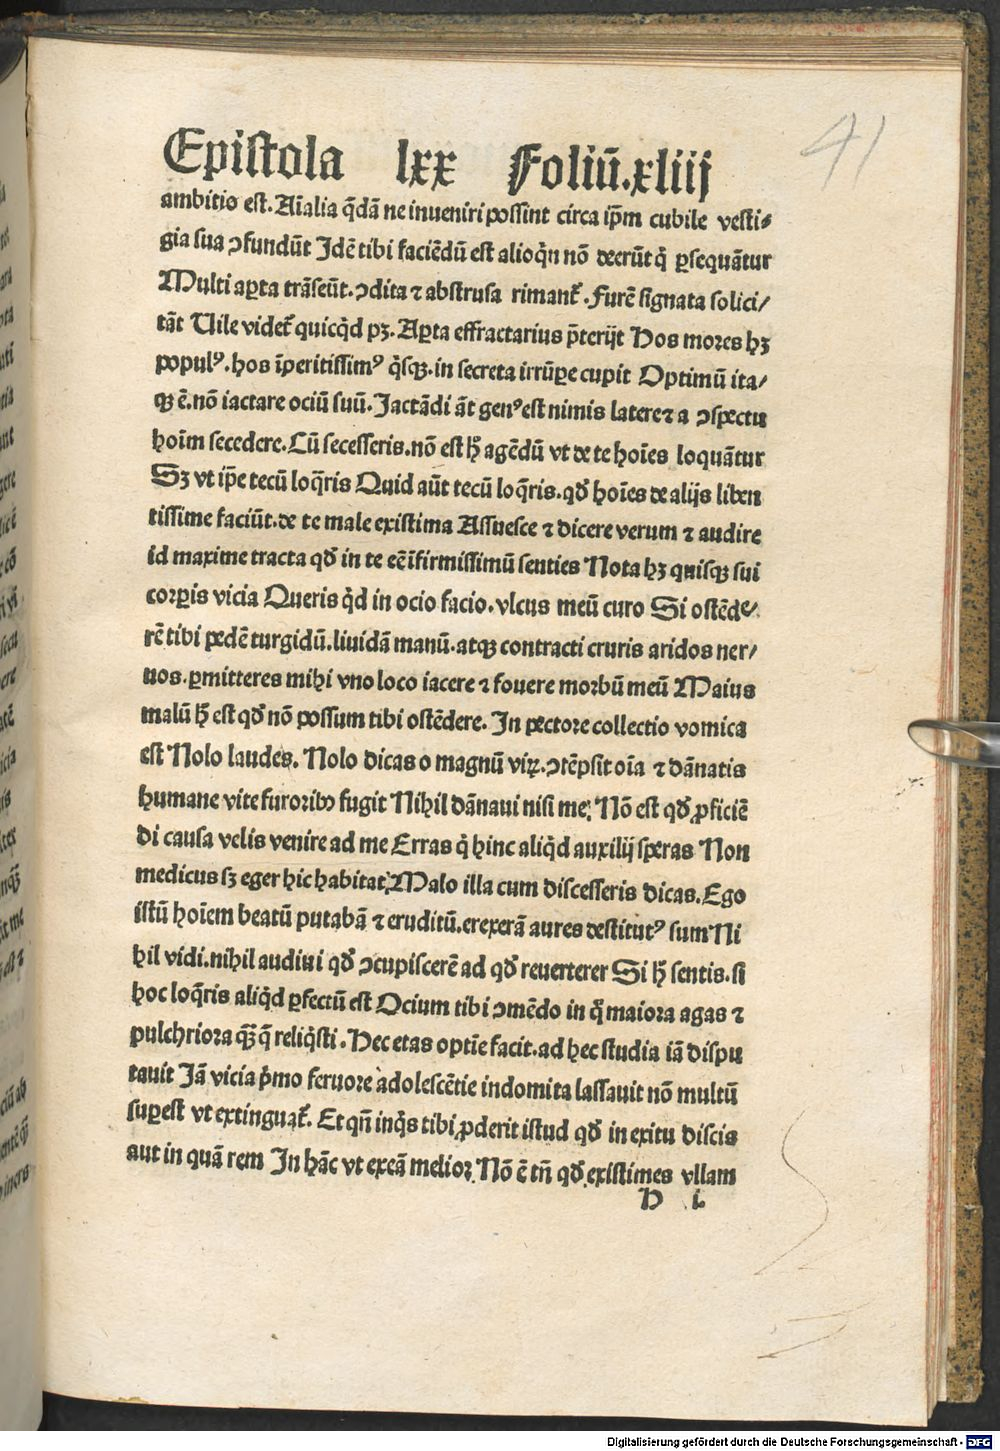 Epistola lxx Foliū.xliij
41
ambitio est. Aīalia q̄dā ne inueniri possint circa ip̄m cubile vesti⸗
gia sua ↄfundūt Idē tibi faciēdū est alioq̇n nō deerūt q̇ ꝑsequātur
Multi aꝑta trāseūt. ↄdita ⁊ abstrusa rimant᷑. Furē signata solici/
tāt Uile videt᷑ quicq̇d pꝫ. Aꝑta effractarius p̄terijt Hos mores hꝫ
populꝰ. hos īperitissimꝰ q̇sqꝫ. in secreta irrūꝑe cupit Optimū ita/
qꝫ ē. nō iactare ociū suū. Jactādi āt genꝰ est nimis latere ⁊ a ↄspectu
hoīm secedere. Cū secesseris. nō est h̄ agēdū vt de te hoīes loquātur
Sꝫ vt ip̄e tecū loq̄ris Quid aūt tecū loq̄ris. qd̓ hoīes de alijs liben
tissime faciūt. de te male existima Assuesce ⁊ dicere verum ⁊ audire
id maxime tracta qd̓ in te eē īfirmissimū senties Nota hꝫ quisqꝫ sui
corꝑis vicia Queris q̇d in ocio facio. vlcus meū curo Si ostēde/
rē tibi pedē turgidū. liuidā manū. atqꝫ contracti cruris aridos ner/
uos. ꝑmitteres mihi vno loco iacere ⁊ fouere morbū meū Maius
malū h̄ est qd̓ nō possum tibi ostēdere. In pectore collectio vomica
est Nolo laudes. Nolo dicas o magnū viꝝ. ↄtēpsit oīa ⁊ dānatis
humane vite furoribꝫ fugit Nihil dānaui nisi me. Nō est qd̓ ꝓficiē
di causa velis venire ad me Erras q̇ hinc aliq̇d auxilij speras Non
medicus sꝫ eger hic habitat. Malo illa cum discesseris dicas. Ego
istū hoīem beatū putabā ⁊ eruditū. erexerā aures destitutꝰ sum Ni
hil vidi. nihil audiui qd̓ ↄcupiscerē ad qd̓ reuerterer Si h̄ sentis. si
hoc loq̄ris aliq̇d ꝑfectū est Ocium tibi ↄmēdo in q̊ maiora agas ⁊
pulchriora qꝫ̄ q̄ reliq̇sti. Hec etas optīe facit. ad hec studia iā dispu
tauit Jā vicia p̓mo feruore adolescētie indomita lassauit nō multū
suꝑest vt extinguāt᷑. Et qn̄ inq̇s tibi ꝓderit istud qd̓ in exitu discis
aut in quā rem In hāc vt exeā melior. Nō ē tn̄ qd̓ existimes vllam
H i.
Digitalisierung gefördert durch die Deutsche Forschungsgemeinschaft - DFG